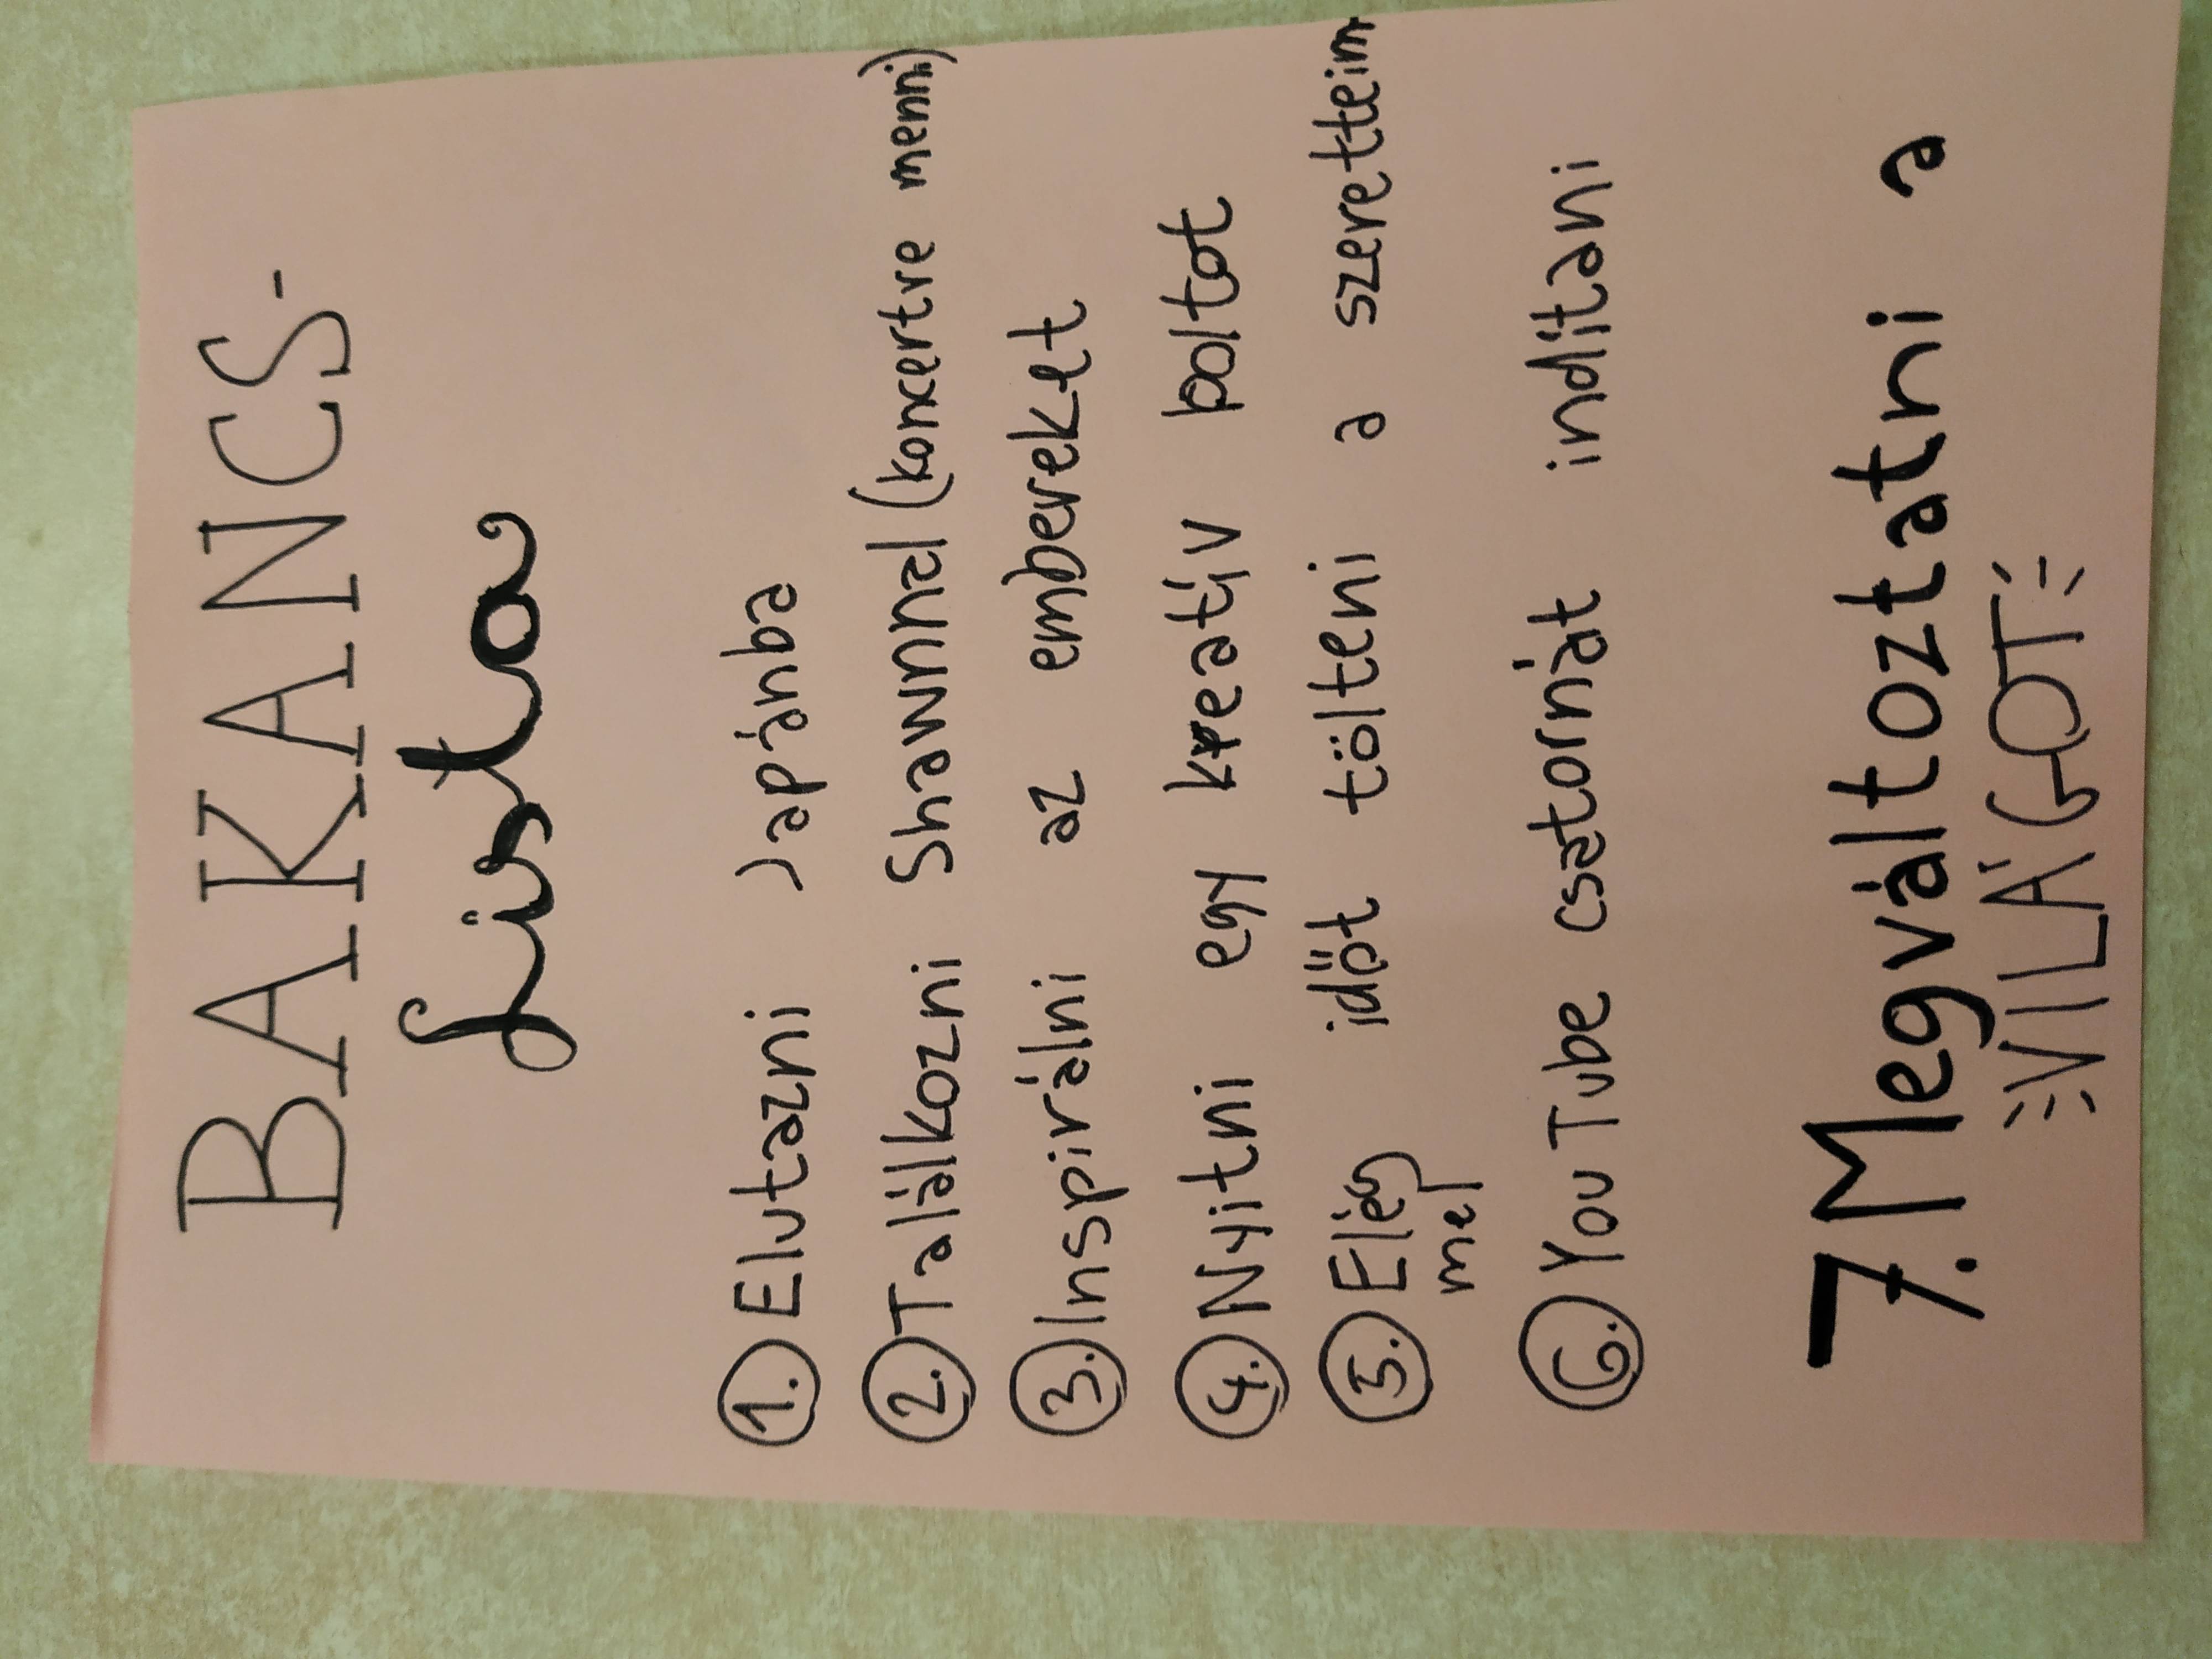 BAKANCS-
lista
1. Elutazni Japánba
2. Találkozni Shawnnal (koncertre menni)
3. Inspirálni az embereket
4. Nyitni egy kreatív boltot
5. Elég időt tölteni a szeretteim
mel
6. YouTube csatornát indítani
7. Megváltoztatni a
VILÁGOT